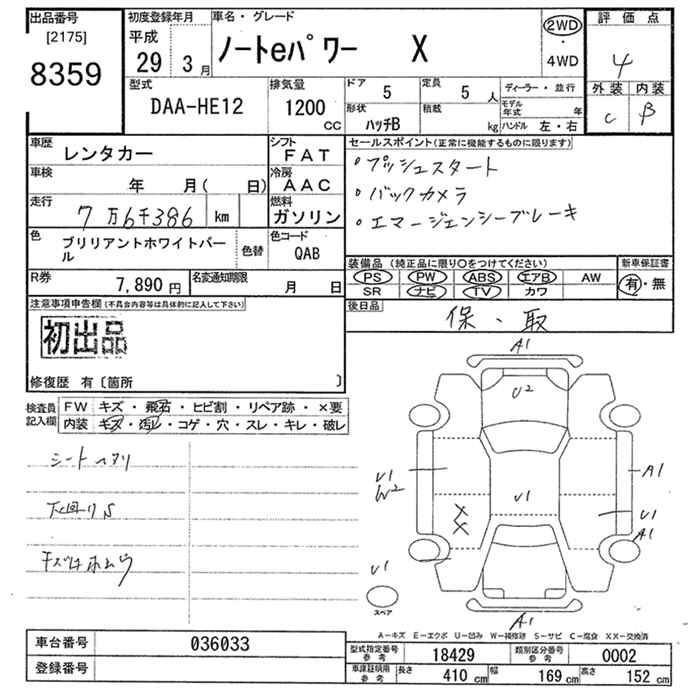 出品番号
[2175]
8359
初度登録年月
平成
29 3月
車名・グレード
ノートeパワー X
2WD
・
4WD
評価点
4
外装 内装
C B
型式
DAA-HE12
排気量
1200
CC
ドア
5
定員
5 人
形状
ハッチB
積載
kg
ディーラー・並行
モデル年式 年
ハンドル 左・右
車歴
レンタカー
シフト
FAT
車検
年 月( 日)
冷房
AAC
走行
7万6千386 km
燃料
ガソリン
色
ブリリアントホワイトパール
色替
色コード
QAB
R券
7,890円
名変通知期限
月 日
セールスポイント(正常に機能するものに限ります)
・プッシュスタート
・バックカメラ
・エマージェンシーブレーキ
装備品(純正品に限り○をつけてください)
PS PW ABS エアB AW
SR ナビ TV カワ
新車保証書
有・無
後日品
保・取
注意事項申告欄(不具合内容等は具体的に記入して下さい)
初出品
修復歴 有〔箇所 〕
検査員
記入欄
FW キズ・飛石・ヒビ割・リペア跡・×要
内装 キズ・汚レ・コゲ・穴・スレ・キレ・破レ
シートヘタリ
下回りS
A1
U2
U1
W2
U1
A1
U1
A1
U1
スペア
A1
A-キズ E-エクボ U-凹み W-補修跡 S-サビ C-腐食 XX-交換済
車台番号
036033
登録番号
型式指定番号
参考
18429
類別区分番号
参考
0002
車庫証明用
参考
長さ
410 cm
幅
169 cm
高さ
152 cm